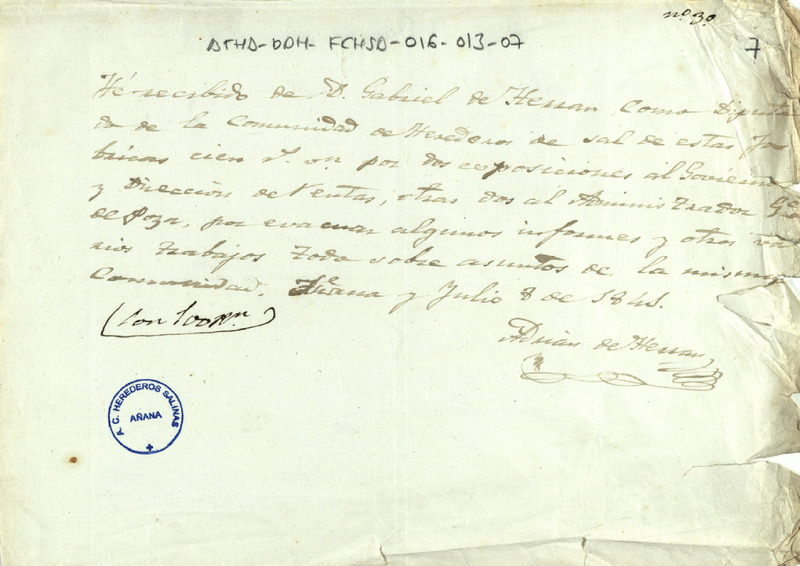 nº 3º
ATHA-DAH-FCHSA-016-013-07
7
Hé recibido de D. Gabriel de Herran como Diputa
do de la Comunidad de Herederos de sal de estas Fa
bricas cien r.s on por dos exposiciones al Govierno
y Dirección de Rentas, otras dos al Administrador
de Poza, por evacuar algunos informes y otros va
rios trabajos todo sobre asuntos de la misma
Comunidad. Añana y Julio 8 de 1841.
Son 100 rn.
Adrian de Herran
A. C. HEREDEROS SALINAS
AÑANA